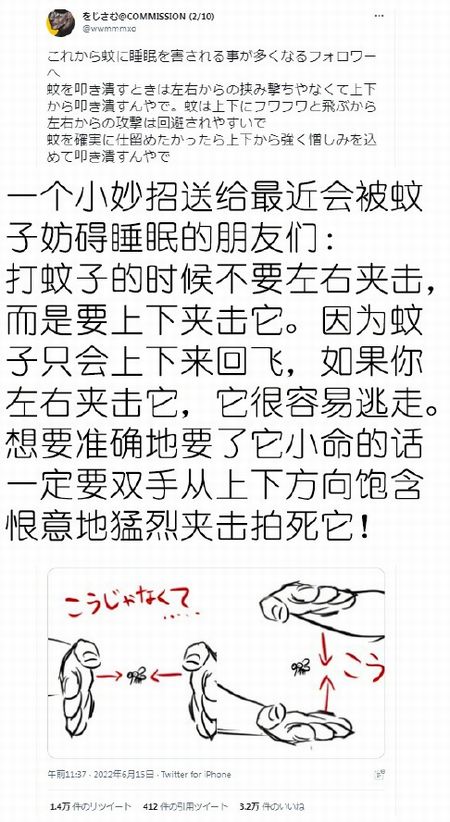 をじさむ@COMMISSION (2/10)
@wwmmmxo
これから蚊に睡眠を害される事が多くなるフォロワー
へ
蚊を叩き潰すときは左右からの挟み撃ちやなくて上下
から叩き潰すんやで。蚊は上下にフワフワと飛ぶから
左右からの攻撃は回避されやすいで
蚊を確実に仕留めたかったら上下から強く憎しみを込
めて叩き潰すんやで
一个小妙招送给最近会被蚊
子妨碍睡眠的朋友们：
打蚊子的时候不要左右夹击，
而是要上下夹击它。因为蚊
子只会上下来回飞，如果你
左右夹击它，它很容易逃走。
想要准确地要了它小命的话
一定要双手从上下方向饱含
恨意地猛烈夹击拍死它！
こうじゃなくて.....
こう
午前11:37 · 2022年6月15日 · Twitter for iPhone
1.4万 件のリツイート 412 件の引用ツイート 3.2万 件のいいね